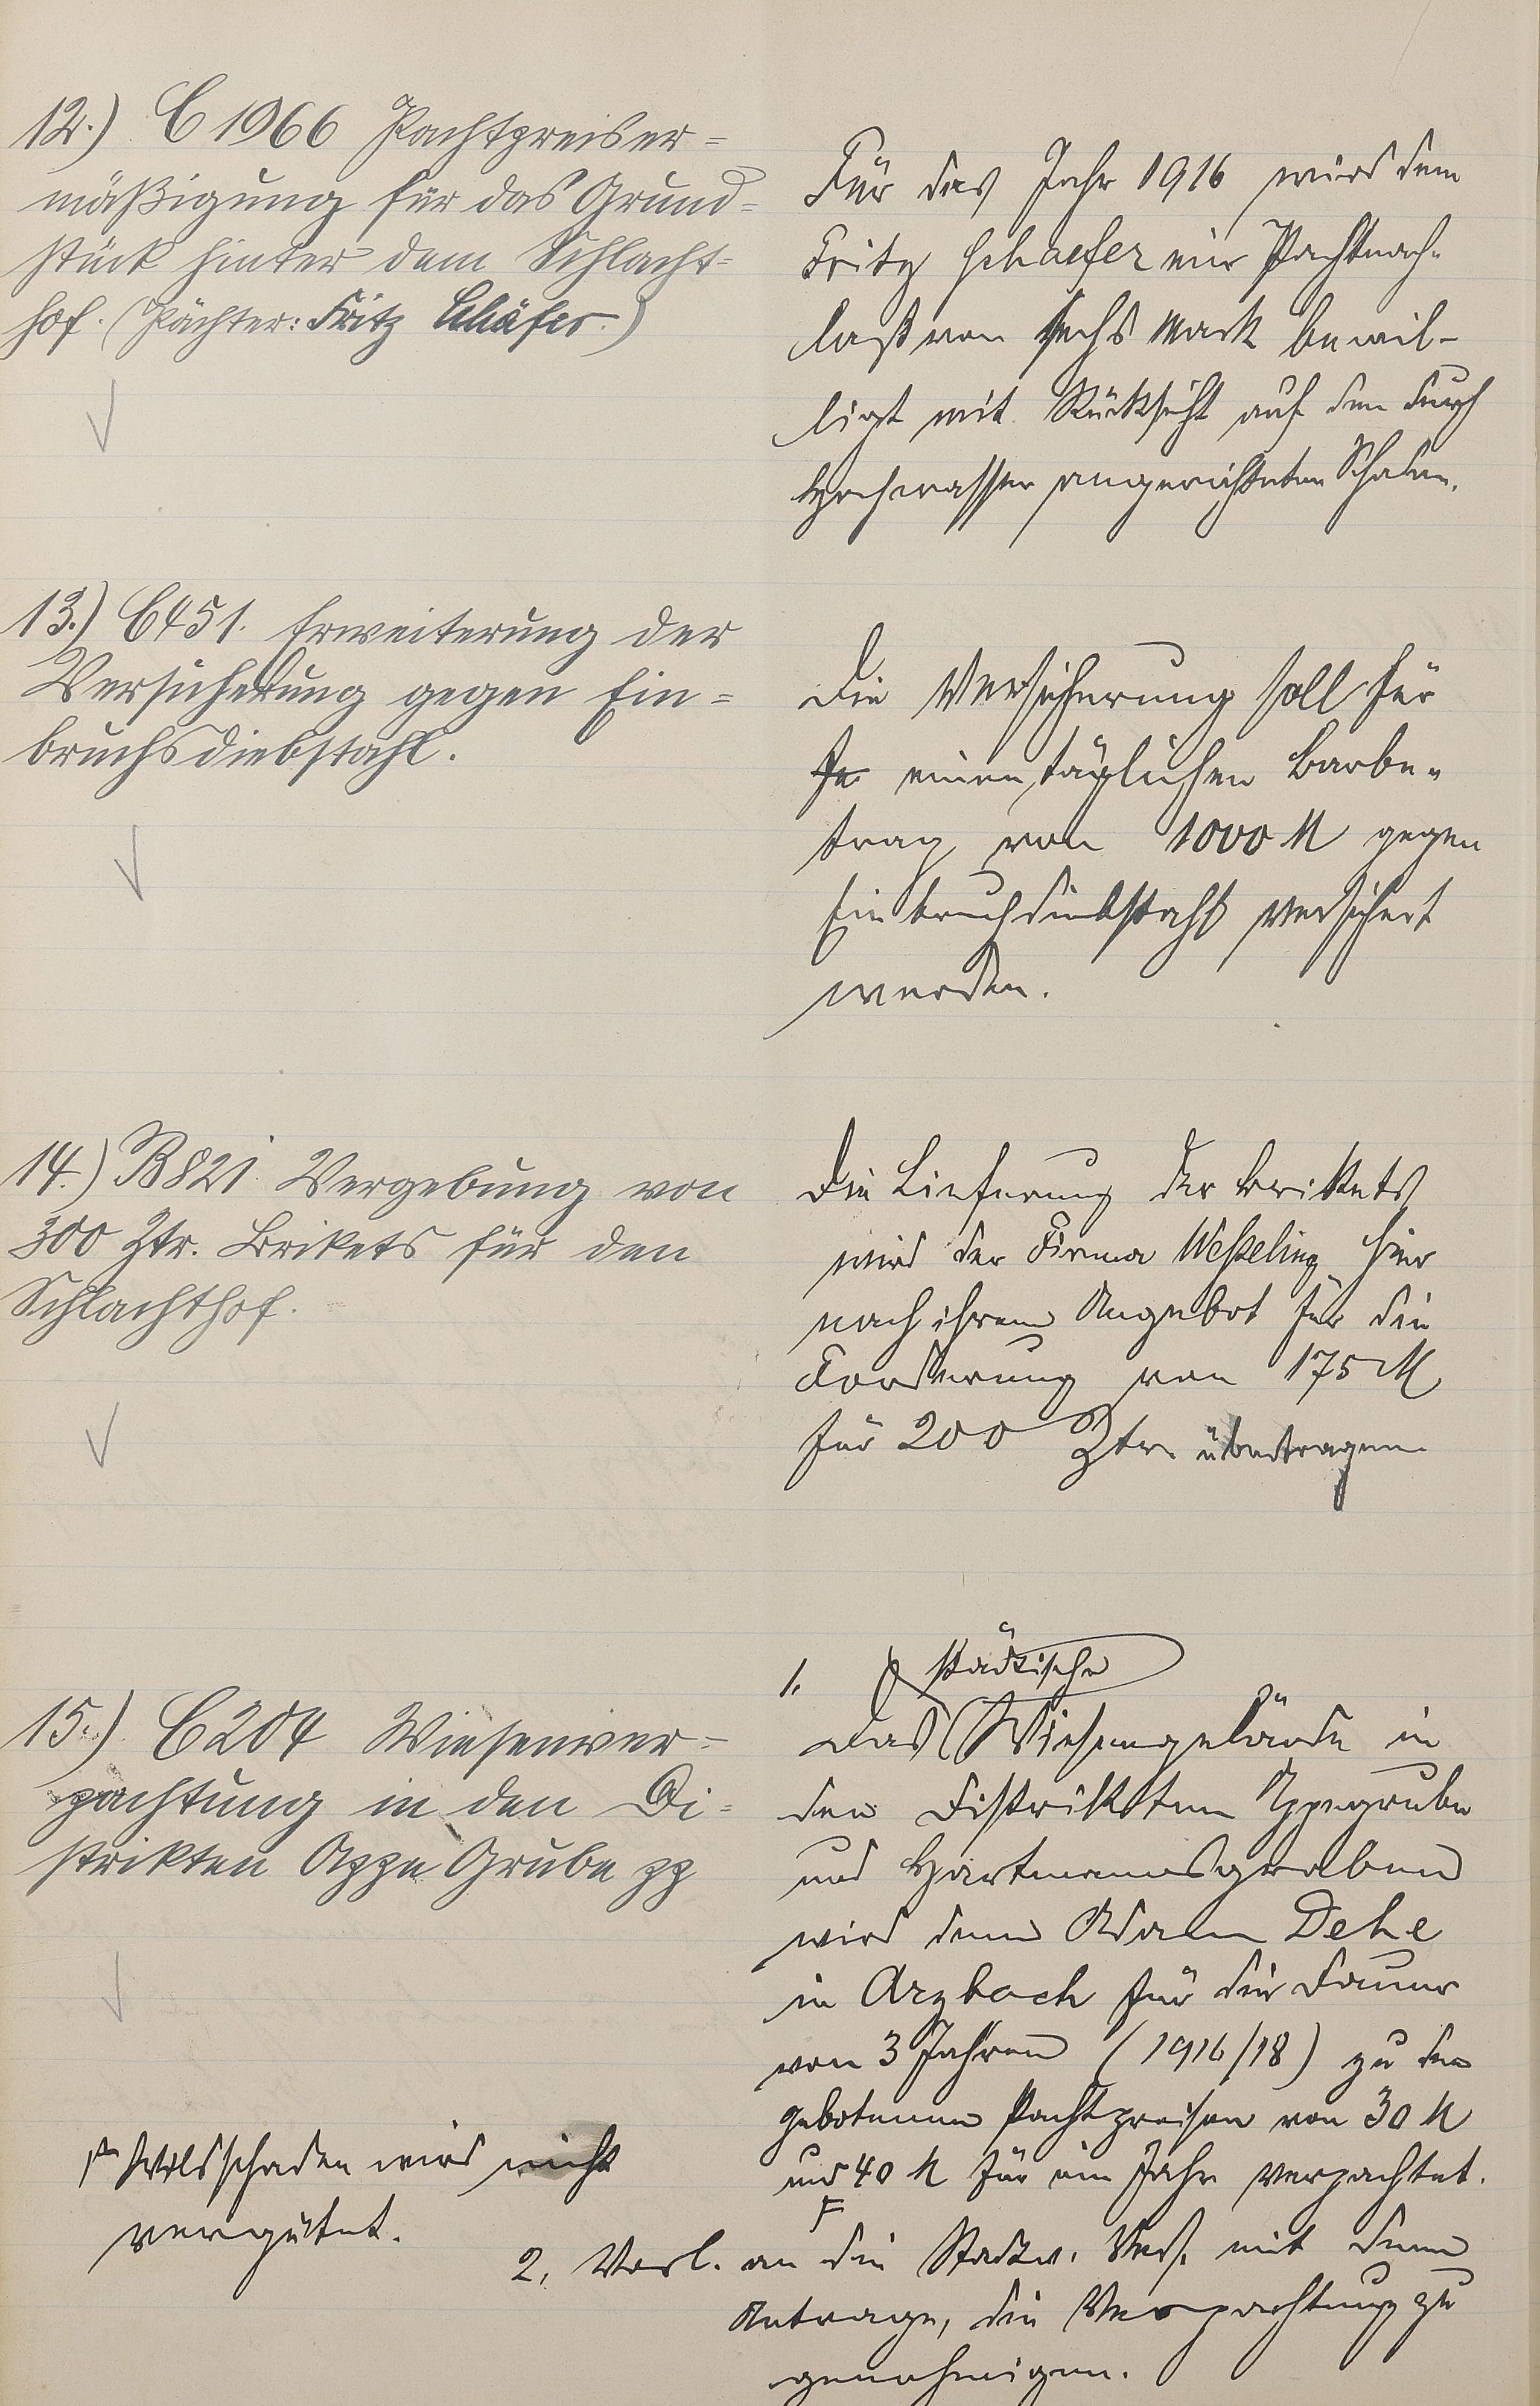 12.) C 1966 Pachtpreiser=
mäßigung für das Grund=
stück hinter dem Schlacht=
hof. (Pächter: Fritz Schäfer.)
Für das Jahr 1916 wird dem
Fritz Schaefer ein Pachtnach-
laß von sechs Mark bewil-
ligt mit Rücksicht auf den durch
Hochwasser angerichteten Schaden.
13.) C 451. Erweiterung der
Versicherung gegen Ein=
bruchsdiebstahl.
Die Versicherung soll für
je einen täglichen Barbe-
trag von 1000 M gegen
Einbruchdiebstahl versichert
werden.
14.) B 821. Vergebung von
300 Ztr. Brikets für den
Schlachthof.
Die Lieferung der Brikets
wird der Firma Weßeling hier
nach ihrem Angebot für die
Forderung von 175 M
für 200 Ztr. übertragen.
15.) C 204 Wiesenver=
pachtung in den Di=
strikten Appe Grube pp
1. städtische
Das Wiesengelände in
den Distrikten Appegrube
und Hartmannsgraben
wird dem Adam Dehe
in Arzbach für die Dauer
von 3 Jahren (1916/18) zu den
gebotenen Pachtpreisen von 30 M
und 40 M für ein Jahr verpachtet.
F
F Wildschaden wird nicht
vergütet.
2. Vorl. an die Stadtv. Vers. mit dem
Antrage, die Verpachtung zu
genehmigen.